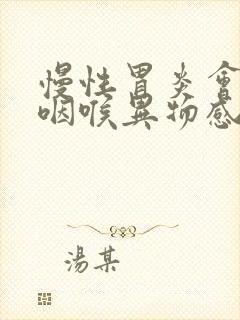 慢性胃炎會
咽喉異物感
湯某